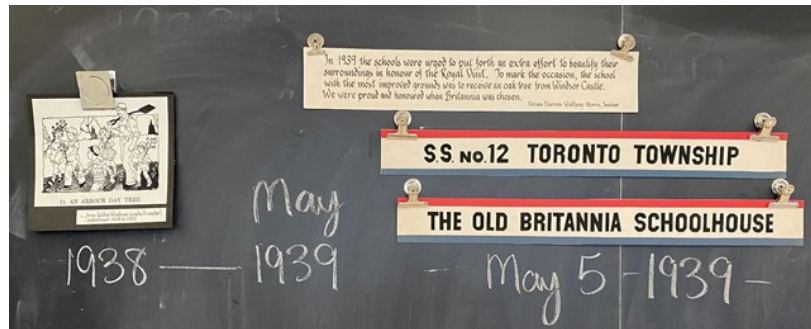 In 1939 the schools were urged to put forth an extra effort to beautify their
surroundings in honour of the Royal Visit. To mark the occasion, the school
with the most improved grounds was to receive an oak tree from Windsor Castle.
We were proud and honoured when Britannia was chosen.
Teacher
S.S. NO. 12 TORONTO TOWNSHIP
11. AN ARBOUR DAY TREE
THE OLD BRITANNIA SCHOOLHOUSE
May
1938 — 1939
- May 5 - 1939 -